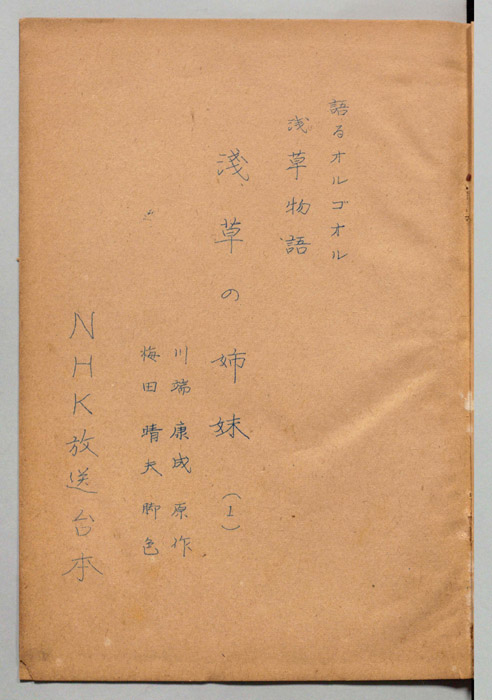 語るオルゴオル
浅草物語
淺草の姉妹(1)
川端康成 原作
梅田晴夫 脚色
NHK放送台本